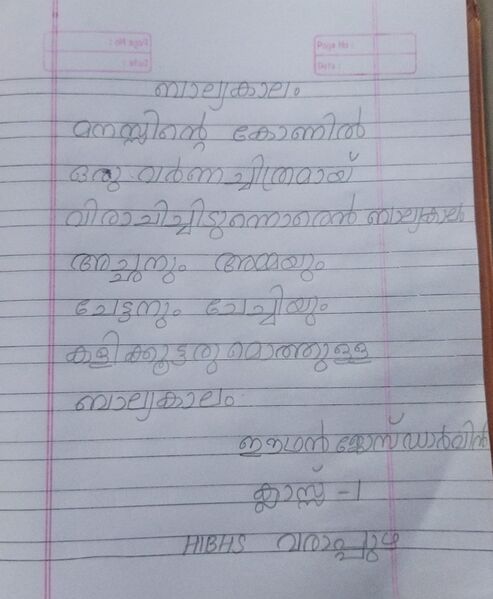 Page No :
Date :
ബാല്യകാലം
മനസ്സിന്റെ കോണിൽ
ഒരു വർണ്ണചിത്രമായ്
വിരാചിച്ചിടുന്നൊരെൻ ബാല്യകാലം
അച്ഛനും അമ്മയും
ചേട്ടനും ചേച്ചിയും
കളിക്കൂട്ടരുമൊത്തുള്ള
ബാല്യകാലം.
ഇഥൻ ജോസ് ഡാർവിൻ
ക്ലാസ്സ് -1
HIBHS വരാപ്പുഴ